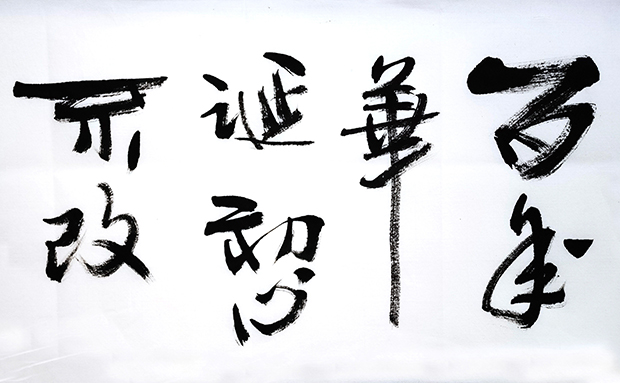 百年
華
誕初心
不改